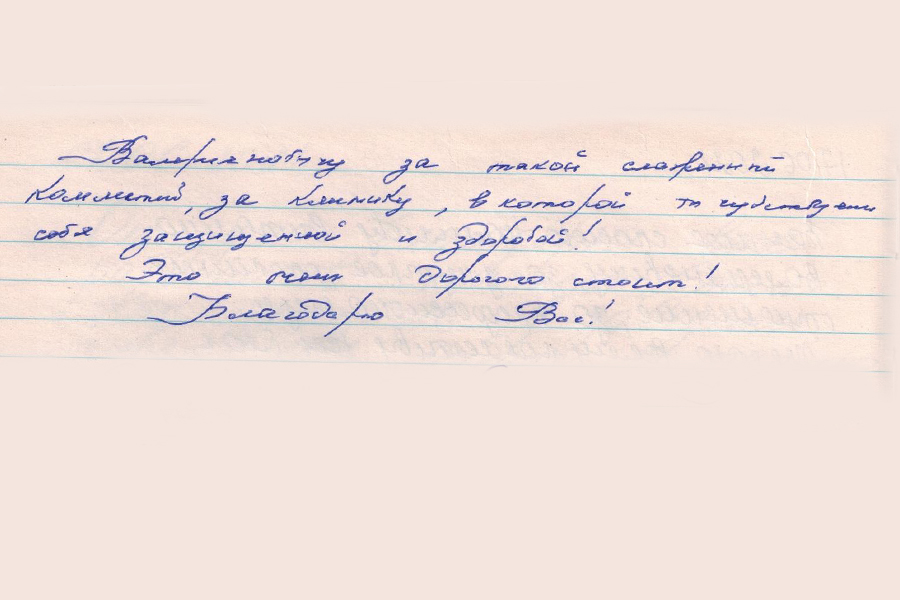 Валериановичу за такой слаженный
коллектив, за клинику, в которой ты чувствуеш
себя защищенной и здоровой!
Это очень дорогого стоит!
Благодарю Вас!